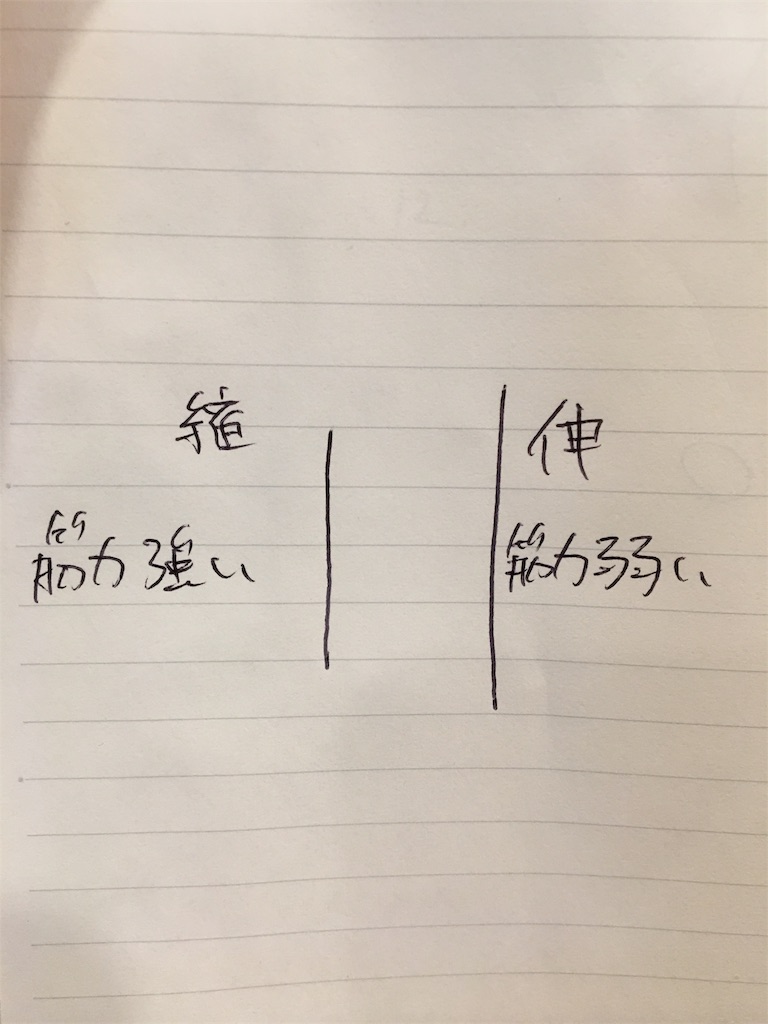 縮
伸
筋力強い
筋力弱い